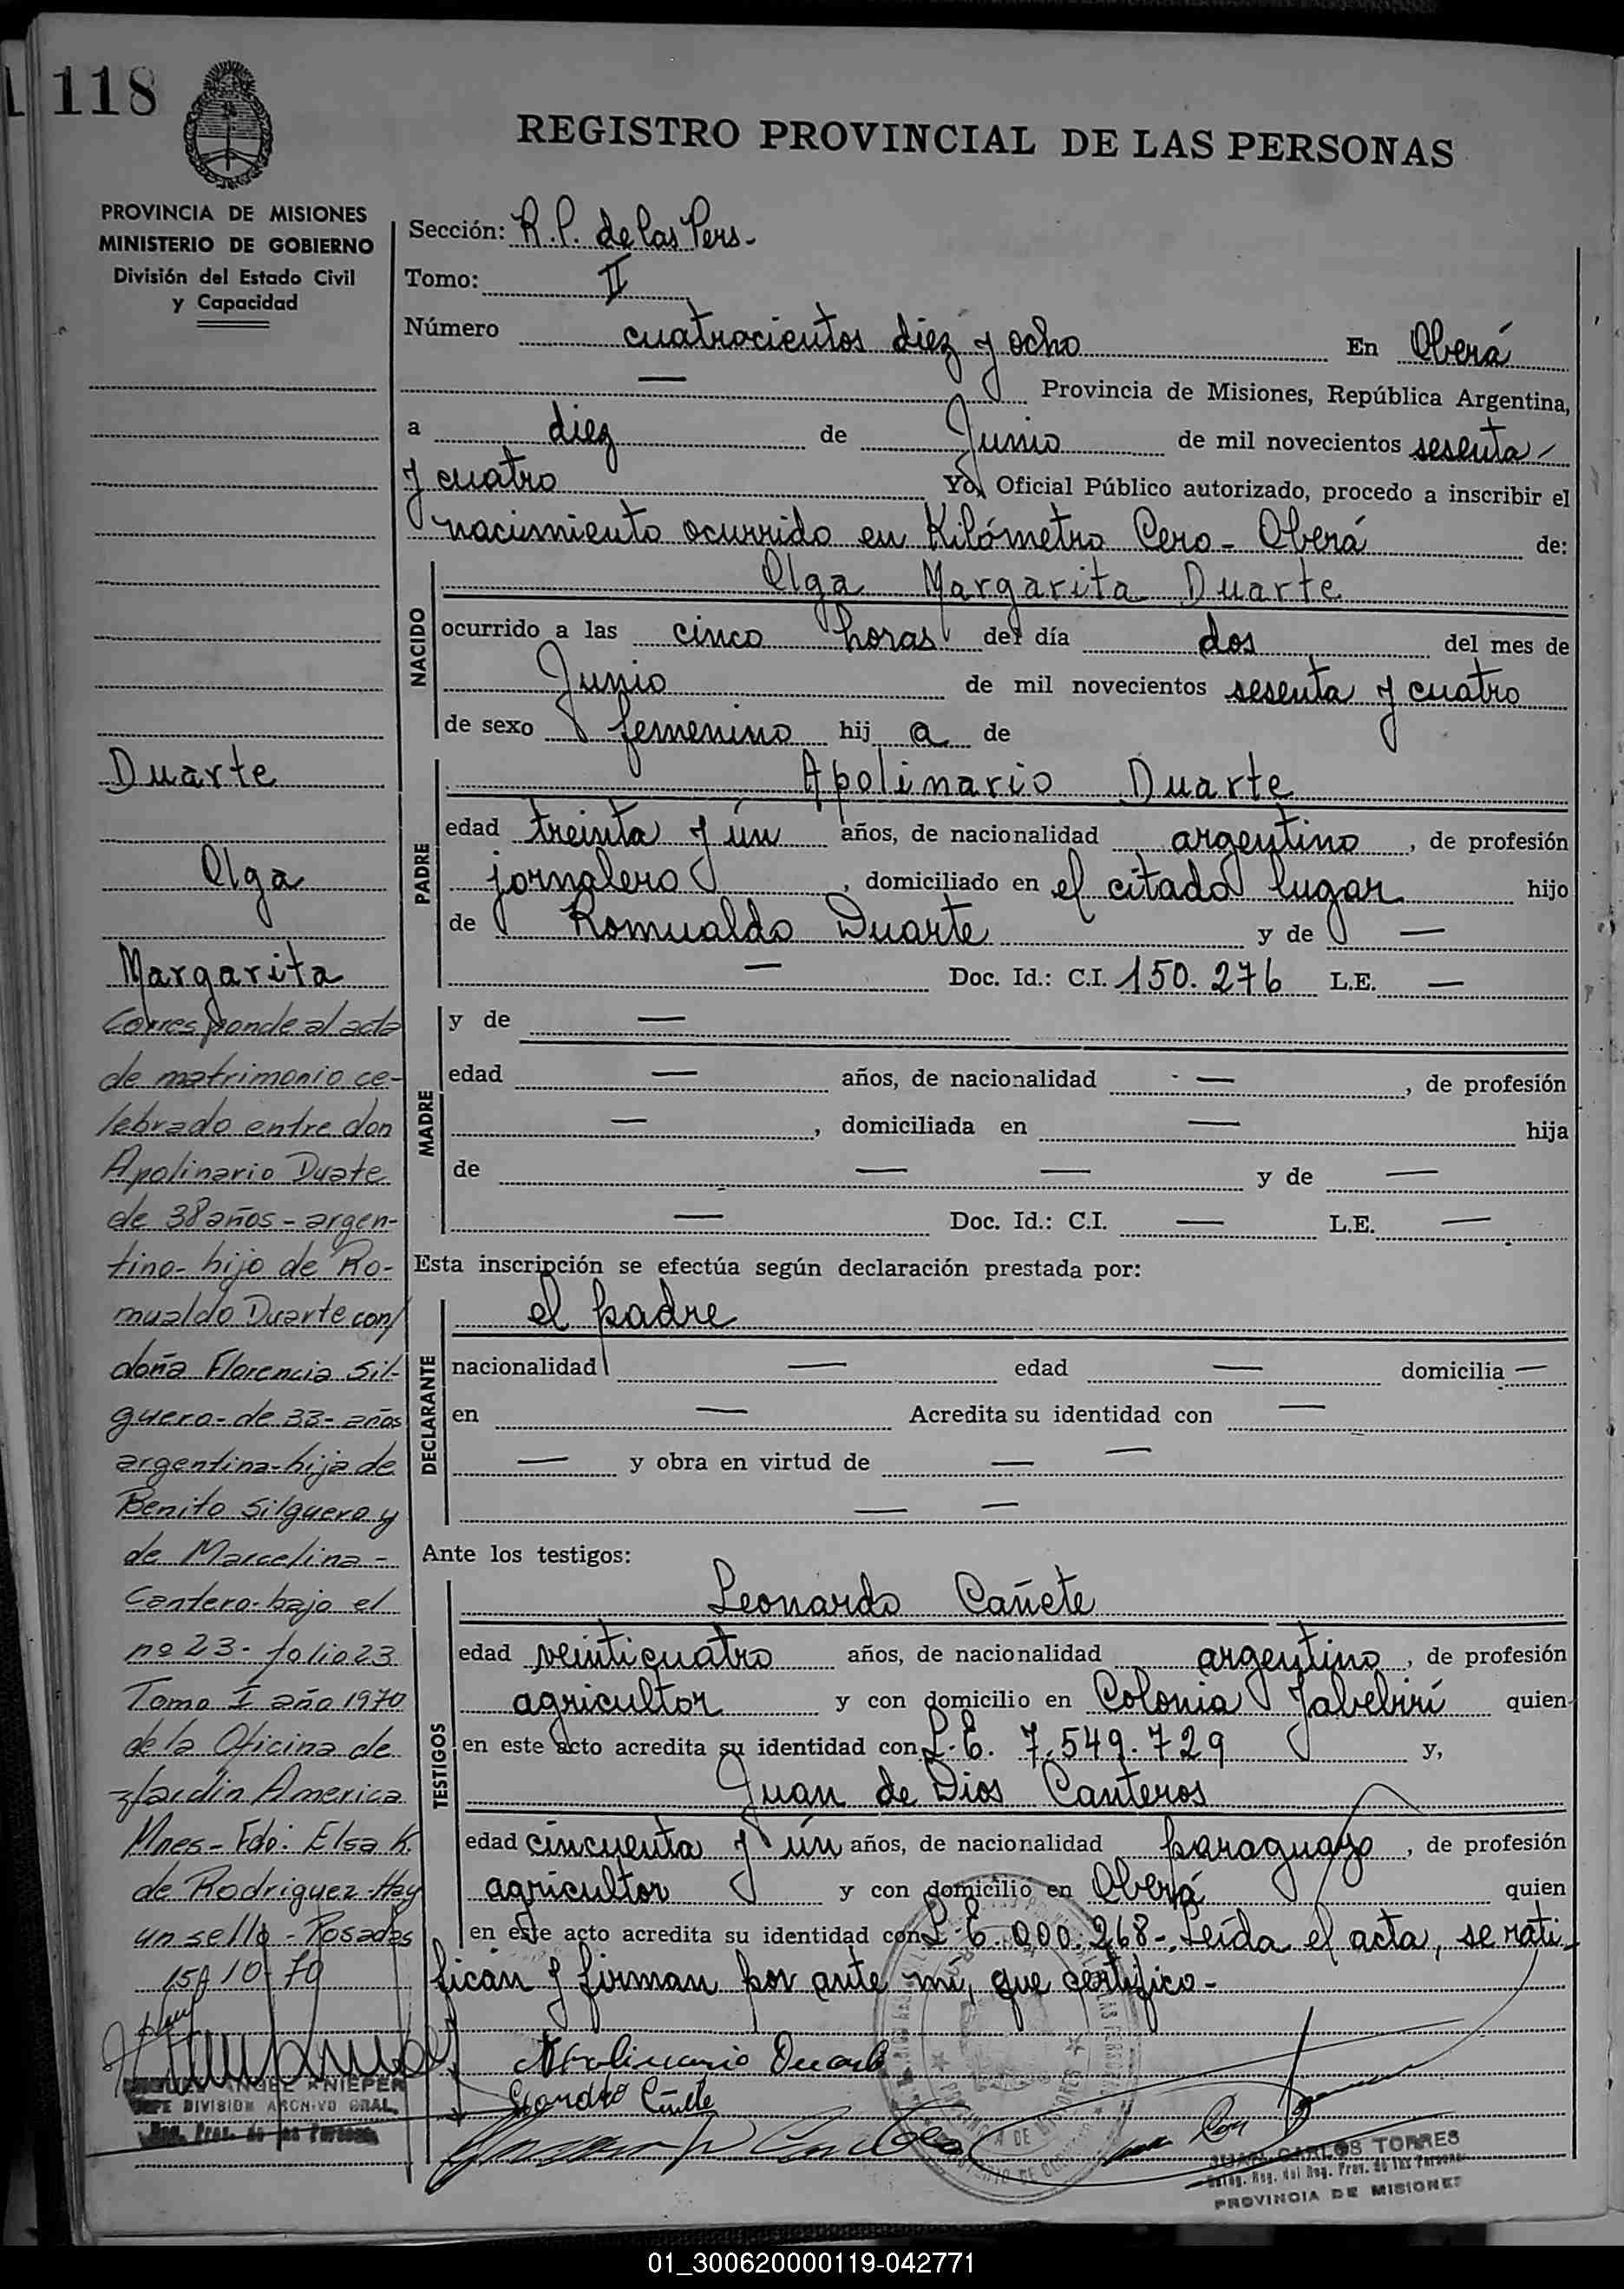 118
REGISTRO PROVINCIAL DE LAS PERSONAS
PROVINCIA DE MISIONES
MINISTERIO DE GOBIERNO
División del Estado Civil
y Capacidad
Duarte
Olga
Margarita
Corresponde al acta
de matrimonio ce-
lebrado entre don
Apolinario Duate
de 38 años - argen-
tino - hijo de Ro-
mualdo Duarte con
doña Florencia Sil-
guero - de 33 - años
argentina - hija de
Benito Silguero y
de Marcelina -
Cantero - bajo el
nº 23 - folio 23
Tomo I año 1970
de la Oficina de
Jardin America
Mnes - Fdo: Elsa K.
de Rodriguez - Hay
un sello - Posadas
15 10 - 70
ANGEL KNIEPER
JEFE DIVISION ARCHIVO GRAL.
Reg. Prov. de las Personas
Sección: R.P. de las Pers -
Tomo: II
Número cuatrocientos diez y ocho En Oberá
— Provincia de Misiones, República Argentina,
a diez de Junio de mil novecientos sesenta
y cuatro Yo, Oficial Público autorizado, procedo a inscribir el
nacimiento ocurrido en Kilómetro Cero - Oberá de:
NACIDO
Olga Margarita Duarte
ocurrido a las cinco horas del día dos del mes de
Junio de mil novecientos sesenta y cuatro
de sexo femenino hij a de
PADRE
Apolinario Duarte
edad treinta y ún años, de nacionalidad argentino, de profesión
jornalero, domiciliado en el citado lugar hijo
de Romualdo Duarte y de —
— Doc. Id.: C.I. 150.276 L.E. —
MADRE
y de —
edad — años, de nacionalidad —, de profesión
—, domiciliada en — hija
de — — y de —
— Doc. Id.: C.I. — L.E. —
Esta inscripción se efectúa según declaración prestada por:
DECLARANTE
el padre
nacionalidad — edad — domicilia —
en — Acredita su identidad con —
— y obra en virtud de — —
— —
Ante los testigos:
TESTIGOS
Leonardo Cañete
edad veinticuatro años, de nacionalidad argentino, de profesión
agricultor y con domicilio en Colonia Jabebirí quien
en este acto acredita su identidad con L.E. 7.549.729 y,
Juan de Dios Canteros
edad cincuenta y ún años, de nacionalidad paraguayo, de profesión
agricultor y con domicilio en Oberá quien
en este acto acredita su identidad con L.E. 000.268 -. Leída el acta, se rati-
fican y firman por ante mí, que certifico -
Apolinario Duarte
JUAN CARLOS TORRES
PROVINCIA DE MISIONES
01_300620000119-042771